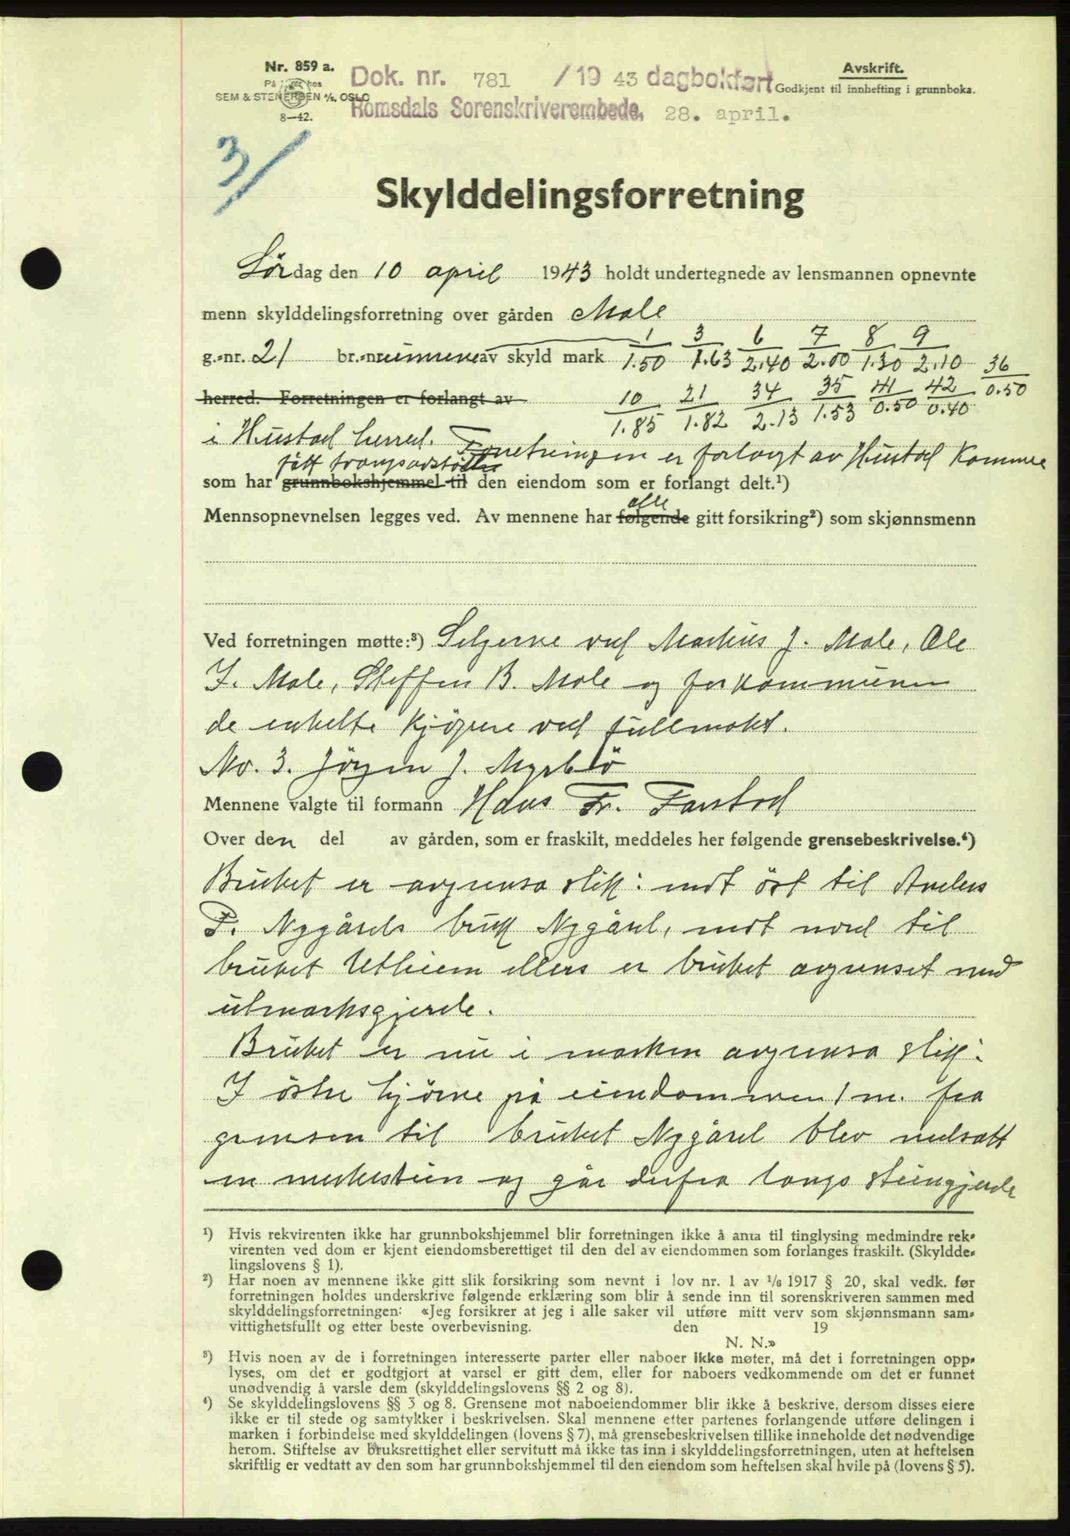 Nr. 859 a.
På lager hos
SEM & STENERSEN A/S, OSLO
8—42.
Dok. nr. 781 /19 43 dagbokført
Romsdals Sorenskriverembede, 28. april.
Avskrift.
Godkjent til innhefting i grunnboka.
3/
Skylddelingsforretning
Lördag den 10 april 1943 holdt undertegnede av lensmannen opnevnte
menn skylddelingsforretning over gården Male
g.-nr. 21 br.-nr. av skyld mark 1/1.50 3/1.63 6/2.40 7/2.00 8/1.30 9/2.10 36/0.50
herred. Forretningen er forlangt av 10/1.85 21/1.82 34/2.13 35/1.53 41/0.50 42/0.40
i Hustad herred. Forretningen er forlangt av Hustad Komme
fått
som har grunnbokshjemmel til den eiendom som er forlangt delt.¹)
alle
Mennsopnevnelsen legges ved. Av mennene har følgende gitt forsikring²) som skjønnsmenn
Ved forretningen møtte:³) Selgerne ved Markus J. Male, Ole
J. Male, Steffen B. Male og for kommunen
de enkelte kjöpere ved fullmakt.
No. 3. Jörgen J. Myrbö
Mennene valgte til formann Hans Fr. Farstad
Over den del av gården, som er fraskilt, meddeles her følgende grensebeskrivelse.⁴)
Bruket er avgrensa slik: mot öst til Anders
P. Nygårds bruk Nygård, mot nord til
bruket Utheim ellers er bruket avgrenset med
utmarksgjerde.
Bruket er nu i marken avgrensa slik:
I östre hjörne på eiendommen 1 m. fra
grensen til bruket Nygård blev nedsatt
en merkestein og går derfra langs steingjerde
¹) Hvis rekvirenten ikke har grunnbokshjemmel blir forretningen ikke å anta til tinglysing medmindre rek-
virenten ved dom er kjent eiendomsberettiget til den del av eiendommen som forlanges fraskilt. (Skyldde-
lingslovens § 1).
²) Har noen av mennene ikke gitt slik forsikring som nevnt i lov nr. 1 av ¹/₆ 1917 § 20, skal vedk. før
forretningen holdes underskrive følgende erklæring som blir å sende inn til sorenskriveren sammen med
skylddelingsforretningen: «Jeg forsikrer at jeg i alle saker vil utføre mitt verv som skjønnsmann sam-
vittighetsfullt og etter beste overbevisning. den 19
N. N.»
³) Hvis noen av de i forretningen interesserte parter eller naboer ikke møter, må det i forretningen opp-
lyses, om det er godtgjort at varsel er gitt dem, eller for naboers vedkommende om det er funnet
unødvendig å varsle dem (skylddelingslovens §§ 2 og 8).
⁴) Se skylddelingslovens §§ 3 og 8. Grensene mot naboeiendommer blir ikke å beskrive, dersom disses eiere
ikke er til stede og samtykker i beskrivelsen. Skal mennene etter partenes forlangende utføre delingen i
marken i forbindelse med skylddelingen (lovens § 7), må grensebeskrivelsen tillike inneholde det nødvendige
herom. Stiftelse av bruksrettighet eller servitutt må ikke tas inn i skylddelingsforretningen, uten at heftelsen
skriftlig er vedtatt av den som har grunnbokshjemmel til den eiendom som heftelsen skal hvile på (lovens § 5).